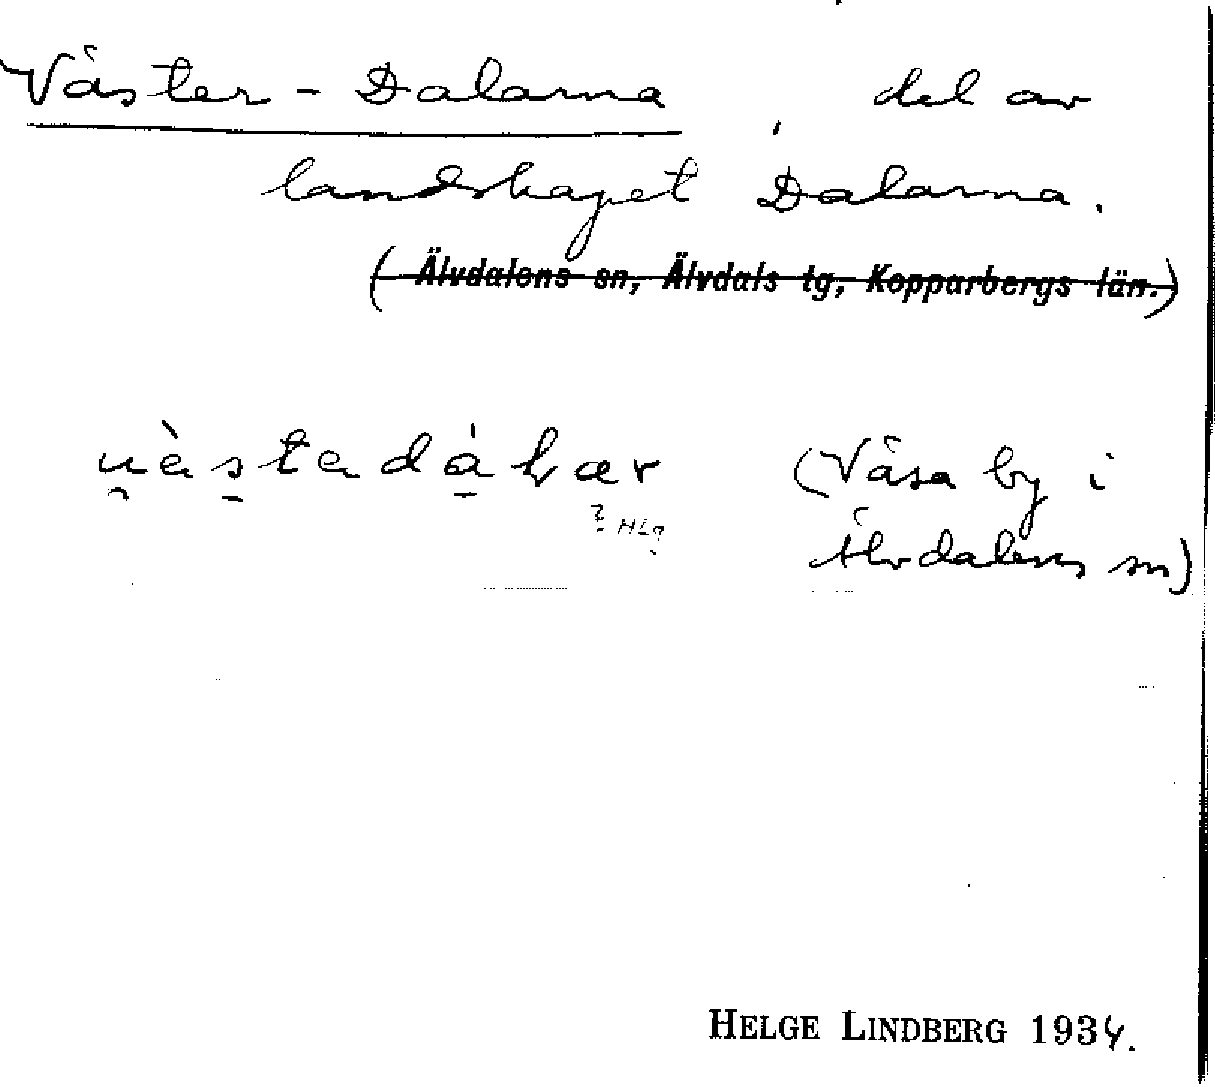 Väster-Dalarna, del av
landskapet Dalarna.
(Älvdalens sn, Älvdals tg, Kopparbergs län.)
(Våsa by i
Älvdalens sn)
HELGE LINDBERG 1934.